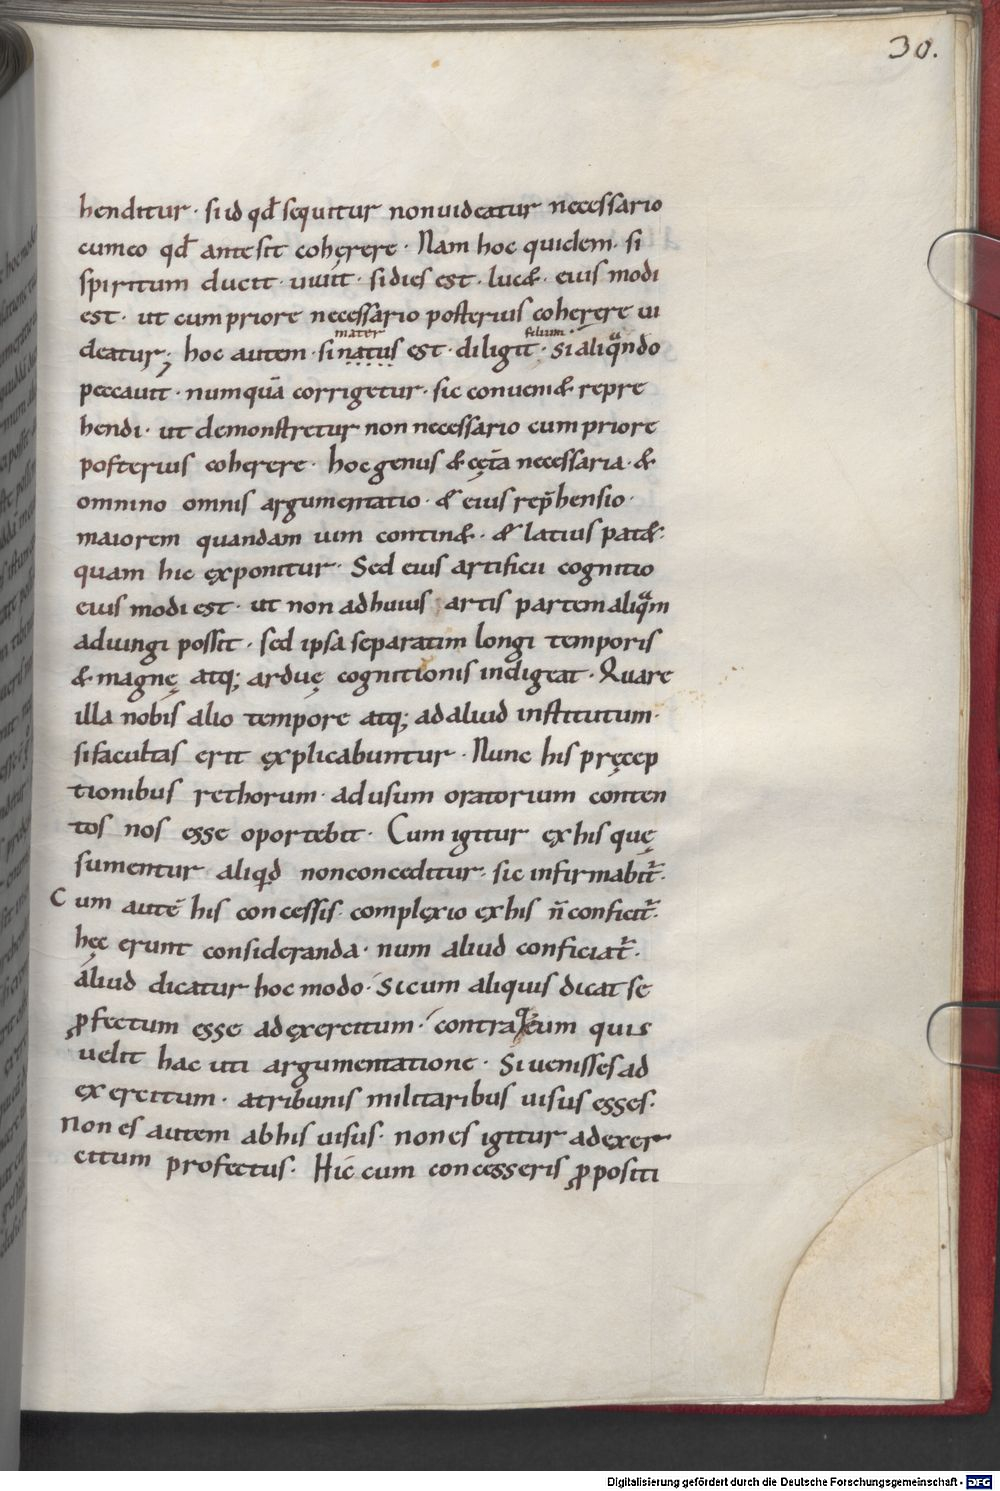 30.
henditur · si id qđ sequitur non uideatur necessario
cum eo qđ ante sit cohęrere · Nam hoc quidem · si
spiritum ducit · uiuit · si dies est · luc& · eius modi
est · ut cum priore necessario posterius coherere ui
mater filium ·
deatur; hoc autem · si natus est · diligit · si aliqͣndo
peccauit · numquā corrigetur · sic conueni& repre
hendi · ut demonstretur non necessario cum priore
posterius coherere · hoc genus & cęt̄a necessaria · &
omnino omnis argumentatio · & eius rep̄hensio ·
maiorem quandam uim contin& · & latius pat& ·
quam hic exponitur · Sed eius artificii cognitio
eius modi est · ut non ad huius artis partem aliqͣm
adiungi possit · sed ipsa separatim longi temporis
& magnę atq; arduę cognitionis indigeat · Quare
illa nobis alio tempore atq; ad aliud institutum ·
si facultas erit explicabuntur · Nunc his pręcep
tionibus rethorum · ad usum oratorium conten
tos nos esse oportebit · Cum igitur ex his quę
sumentur aliqd non conceditur · sic infirmabit̄ ·
Cum autē his concessis · complexio ex his n̄ conficit̄ ·
hęc erunt consideranda · num aliud conficiat̄ ·
aliud dicatur hoc modo · Si cum aliquis dicat se
ꝓfectum esse ad exercitum · contra eum quis
uelit hac uti argumentatione · Si uenisses ad
exercitum · a tribunis militaribus uisus esses ·
Non es autem ab his uisus · non es igitur ad exer
citum profectus · Hic cum concesseris ꝓpositi
Digitalisierung gefördert durch die Deutsche Forschungsgemeinschaft - DFG